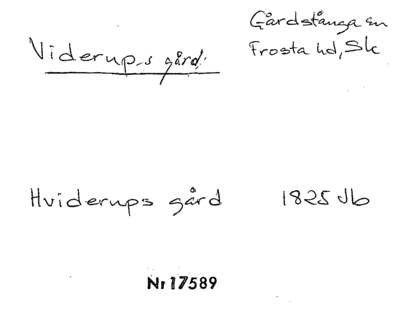 Viderup-s gård.
Gårdstånga sn
Frosta hd, Sk
Hviderups gård 1825 Jb
Nr 17589